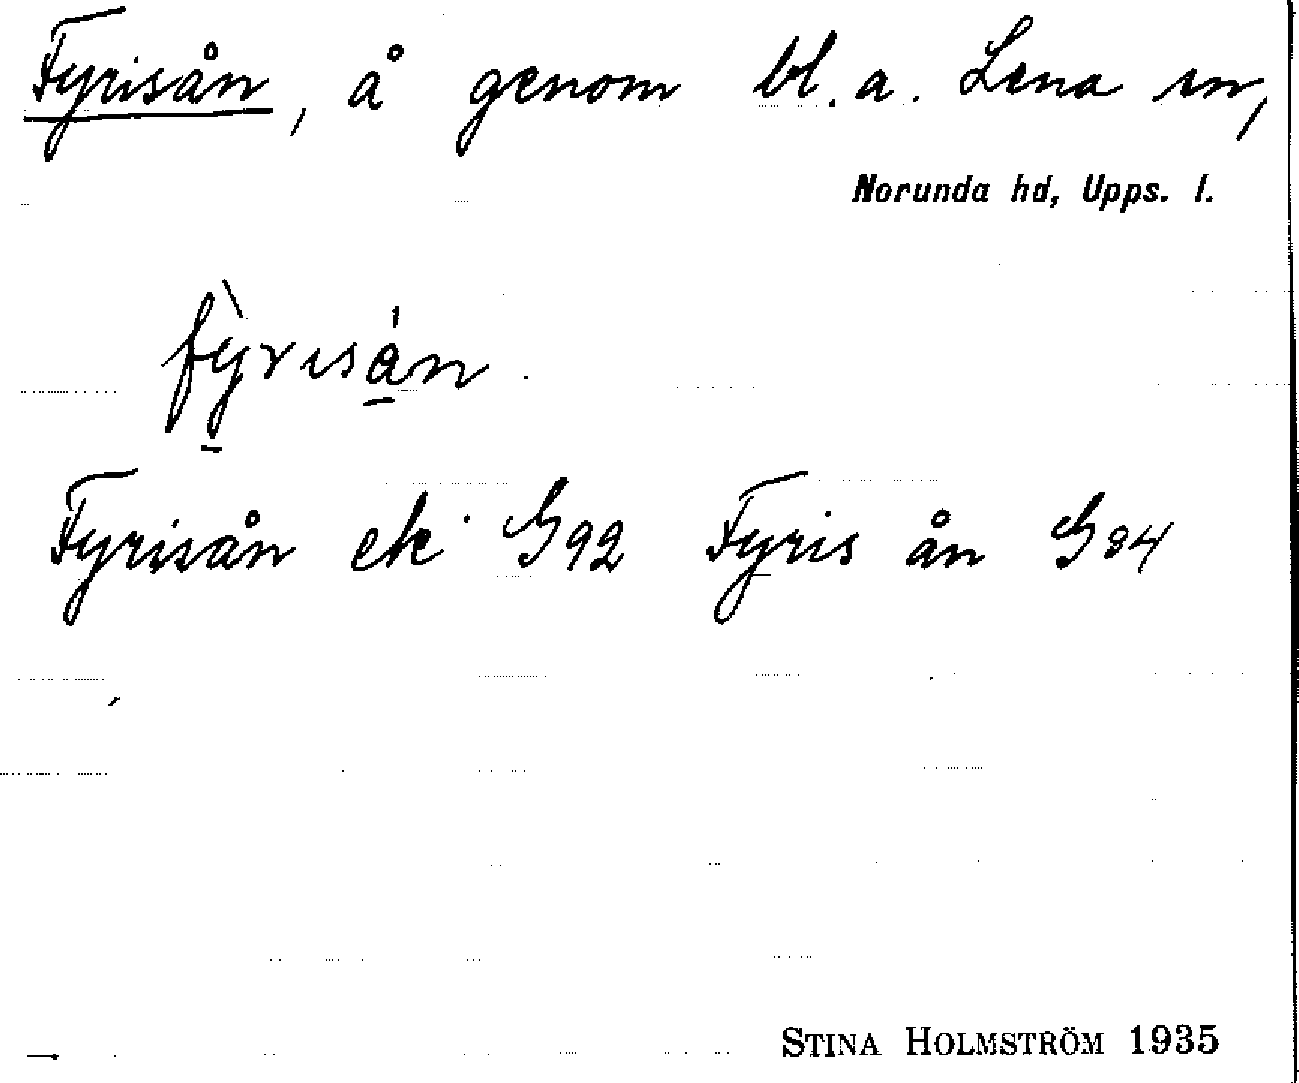 Fyrisån, å genom bl. a. Lena sn,
Norunda hd, Upps. l.
fỳrisa̍n.
Fyrisån ek G92 Fyris ån G84
STINA HOLMSTRÖM 1935